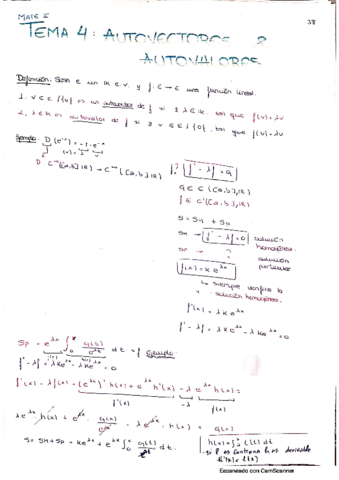 MATE I
37
TEMA 4: AUTOVECTORES &
AUTOVALORES
Definición: Sean E un K e.v. y f: E → E una función lineal.
1. v ∈ E \ {0} es un autovector de f si ∃ λ ∈ K tal que f(v) = λv
2. λ ∈ K es autovalor de f si ∃ v ∈ E \ {0}, tal que f(v) = λv
Ejemplo: D (e^-x) = -1 · e^-x
f(v) = λ v
D: C^∞([a,b],ℝ) → C^∞([a,b],ℝ)
f? f' - λf = g
g ∈ C([a,b],ℝ)
f ∈ C'([a,b],ℝ)
S = SH + SP
SH → f' - λf = 0 solución homogénea
SP → ? solución particular
f(x) = k e^λx
↳ siempre verifica la solución homogénea.
f'(x) = λ k e^λx
f' - λf = λ k e^λx - λ k e^λx = 0
SP = e^λx ∫₀ˣ g(t)/e^λt dt = f
f' - λf = λ k e^λx - λ k e^λx = 0
f'(x) - λf(x) = (e^λx)' h(x) + e^λx h'(x) - λ e^λx h(x) =
f'(x) -λ f(x)
λ e^λx h(x) + e^λx · g(x)/e^λx - λ e^λx · h(x) = g(x)
S = SH + SP = k e^λx + e^λx ∫₀ˣ g(t)/e^λt dt.
h(x) = ∫₀ˣ l(t) dt
si l es continua h es derivable
h'(x) = l(x)
Escaneado con CamScanner